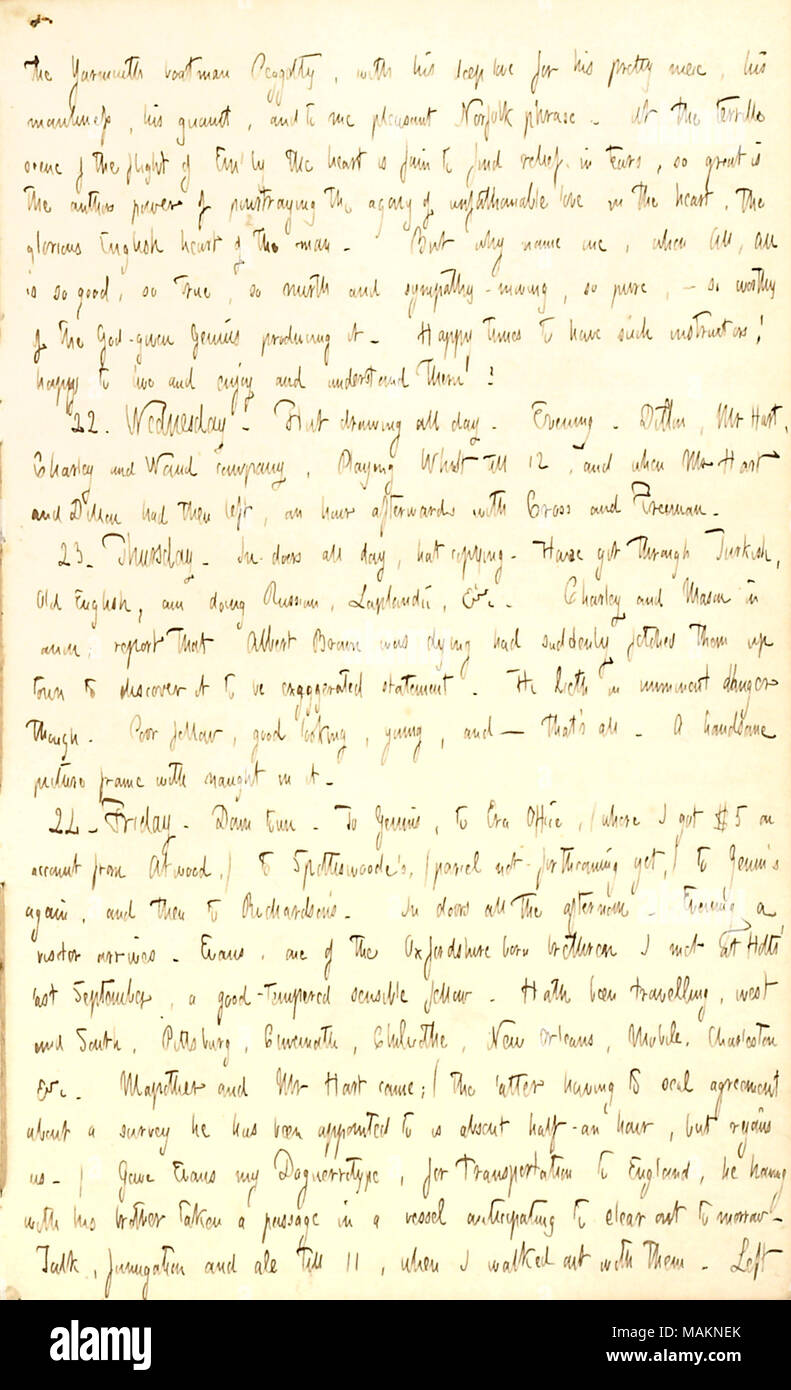 the Yarmouth boatman Peggotty, with his deep love for his pretty niece, his
manliness, his quaint, and to me pleasant Norfolk phrase. At the terrible
scene of the flight of Em'ly the heart is fain to find relief in tears, so great is
the authors power of pourtraying the agony of unfathomable love in the heart, the
glorious English heart of the man. But why name one, when all, all
is so good, so true, so mirth and sympathy-moving, so pure, — so worthy
of the God-given Genius producing it. Happy times to have such instructors!
happy to live and enjoy and understand them!
22. Wednesday. Hat drawing all day. Evening. Dillon, Mr Hart,
Charley and Waud company. Playing Whist till 12, and when Mr Hart
and Dillon had then left, an hour afterwards with Cross and Freeman.
23. Thursday. In-doors all day, hat copying. Have got through Turkish,
Old English, am doing Russian, Laplandic, &c. Charley and Mason in
anon; report that Albert Brown was dying had suddenly fetched them up
town to discover it to be exaggerated statement. He lieth in imminent danger
though. Poor fellow, good looking, young, and — that's all. A handsome
picture frame with naught in it.
24. Friday. Down town. To Genins, to Era Office, (where I got $5 on
account from Atwood,) to Spottiswoode's, (parcel not forthcoming yet,) to Genin's
again, and then to Richardson's. In doors all the afternoon. Evening a
visitor arrives. Evans, one of the Oxfordshire born brethren I met at Holts'
last September, a good-tempered sensible fellow. Hath been travelling, west
and South, Pittsburg, Cincinatti, Chilicothe, New Orleans, Mobile, Charleston
&c. Mapother and Mr Hart came; (the latter having to seal agreement
about a survey he has been appointed to is absent half-an hour, but rejoins
us.) Gave Evans my Daguerreotype, for transportation to England, he having
with his brother taken a passage in a vessel anticipating to clear out to morrow.
Talk, fumigation and ale till 11, when I walked out with them. Left
alamy
Image ID: MAKNEK
www.alamy.com